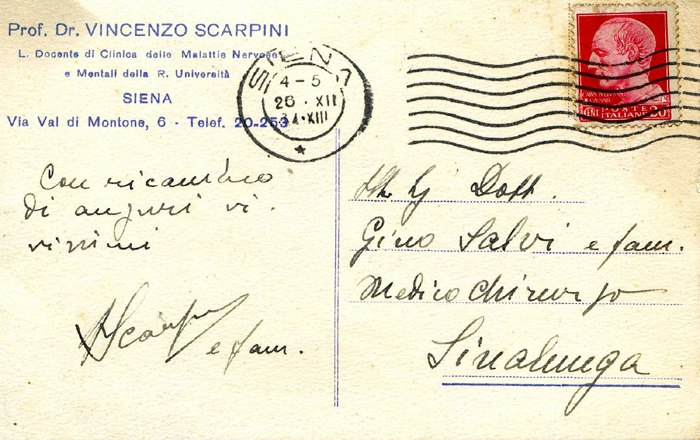 Prof. Dr. VINCENZO SCARPINI
L. Docente di Clinica delle Malattie Nervose
e Mentali della R. Università
SIENA
Via Val di Montone, 6 - Telef. 20-253
SIENA
4-5
26·XII
34·XIII
POSTE ITALIANE
CENT 20
Con ricambio
di auguri vi
vissimi
Scarpini
e fam.
Dott.
Gino Salvi e fam.
Medico Chirurgo
Sinalunga